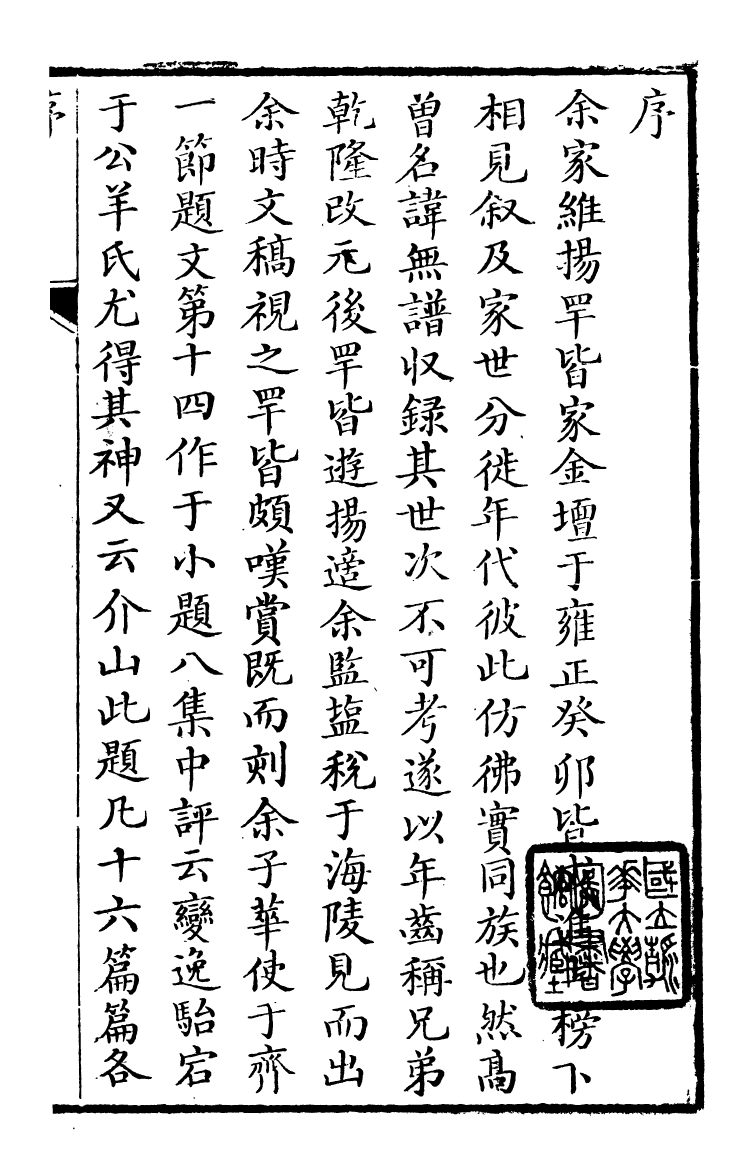 序
余家維揚罕皆家金壇于雍正癸卯皆榜下
相見叙及家世分徙年代彼此仿彿實同族也然高
曾名諱無譜収録其世次不可考遂以年齒稱兄弟
乾隆改元後罕皆遊揚適余監塩稅于海陵見而出
余時文稿視之罕皆頗嘆賞既而刻余子華使于齊
一節題文第十四作于小題八集中評云變逸駘宕
于公羊氏尤得其神又云介山此題凡十六篇篇各
序
國立
大學